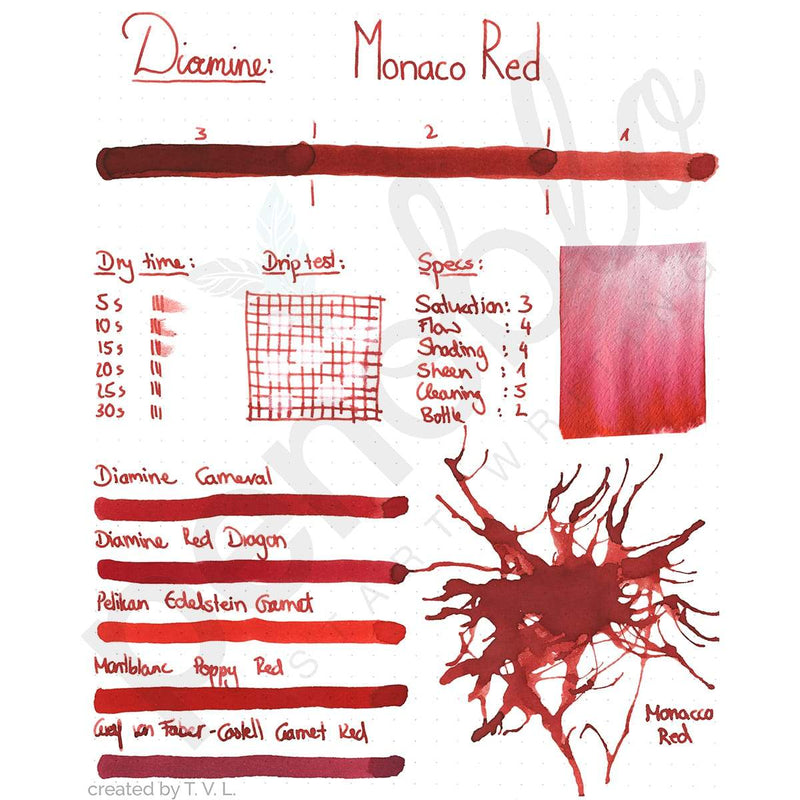 Diamine: Monaco Red
3 2 1
Dry time:
5s
10s
15s
20s
25s
30s
Drip test:
Specs:
Saturation: 3
Flow : 4
Shading : 4
Sheen : 1
Cleaning : 5
Bottle : 2
Diamine Carneval
Diamine Red Dragon
Pelikan Edelstein Garnet
Montblanc Poppy Red
Graf von Faber-Castell Garnet Red
Monacco
Red
penoblo
START WRITING
created by T. V. L.